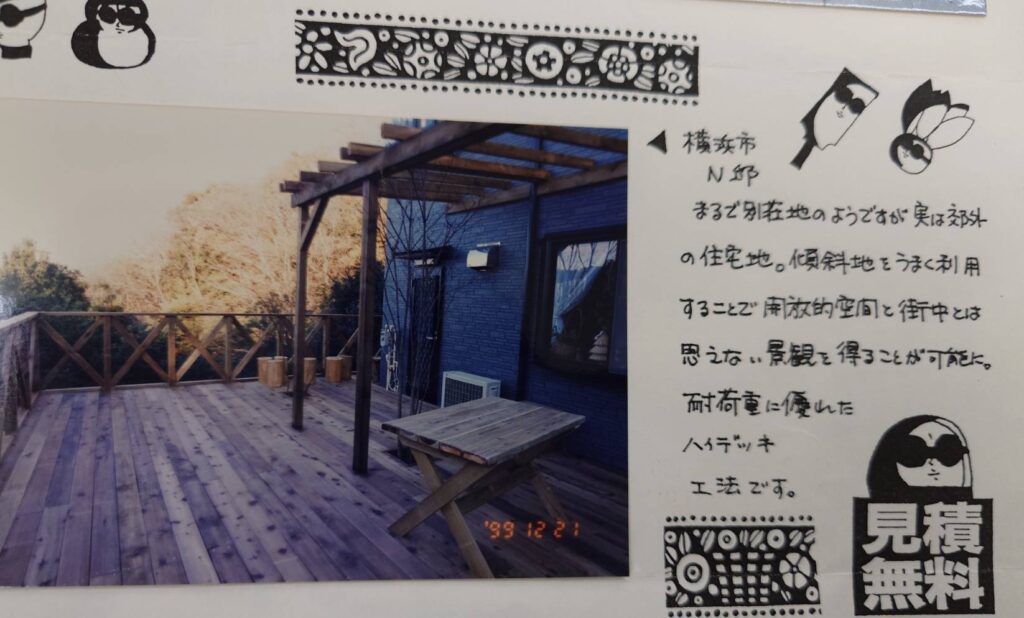 '99 12 21
◀ 横浜市
N邸
まるで別荘地のようですが実は郊外
の住宅地。傾斜地をうまく利用
することで開放的空間と街中とは
思えない景観を得ることが可能に。
耐荷重に優れた
ハイデッキ
工法です。
見積
無料